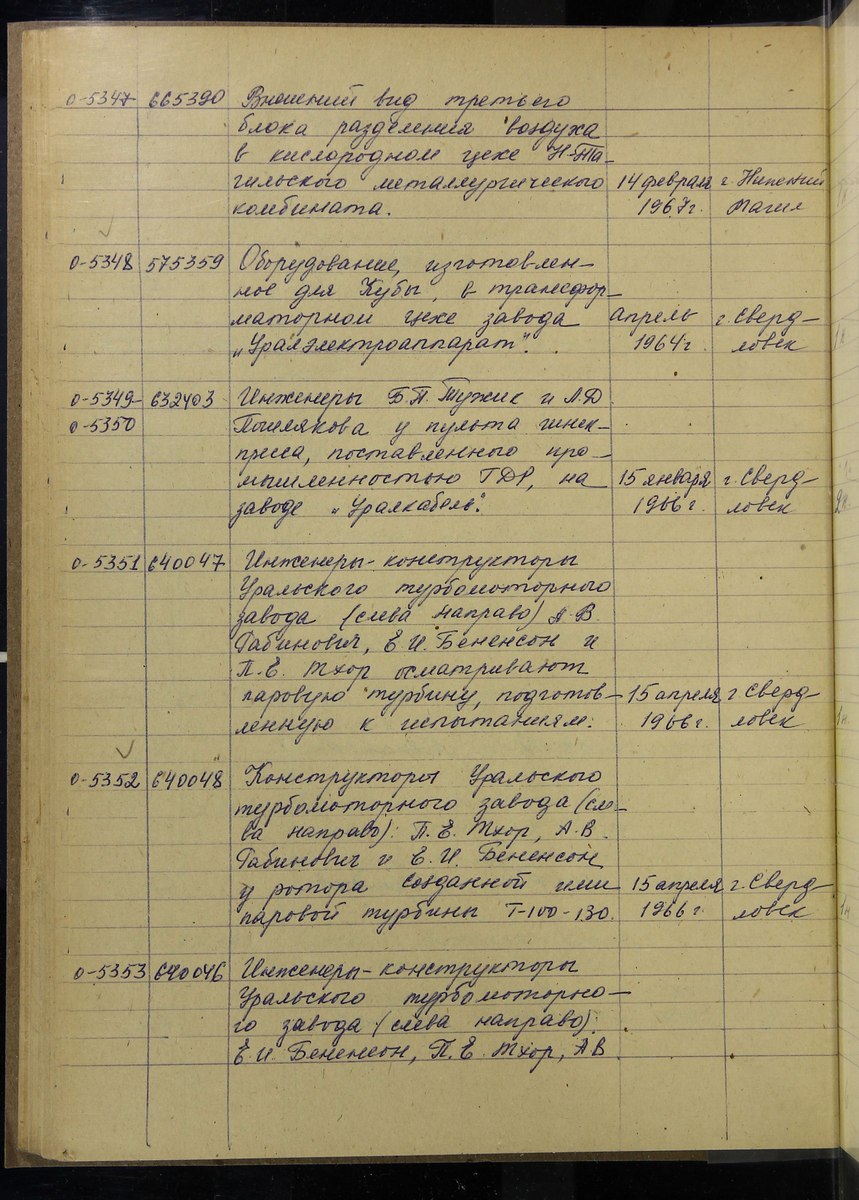 0-5347 665390 Внешний вид третьего
блока разделения воздуха
в кислородном цехе Н-Та-
гильского металлургического 14 февраля г. Нижний
комбината. 1967г. Тагил
0-5348 575359 Оборудование, изготовлен-
ное для Кубы, в трансфор-
маторном цехе завода апрель г. Сверд-
"Уралэлектроаппарат". 1964г. ловск
0-5349- 632403 Инженеры Б.П. Тужик и Л.Д
0-5350 у пульта шнек-
пресса, поставленного про-
мышленностью ГДР, на 15 января г. Сверд-
заводе "Уралкабель". 1966г. ловск
0-5351 640047 Инженеры-конструкторы
Уральского турбомоторного
завода (слева направо) А.В.
Рабинович, Е.И. Бененсон и
П.Е. Тхор осматривают
паровую турбину, подготов- 15 апреля г. Сверд-
ленную к испытаниям. 1966г. ловск
0-5352 640048 Конструкторы Уральского
турбомоторного завода (сле-
ва направо): П.Е. Тхор, А.В.
Рабинович и Е.И. Бененсон
у ротора созданной ими 15 апреля г. Сверд-
паровой турбины Т-100-130. 1966г. ловск
0-5353 640046 Инженеры-конструкторы
Уральского турбомоторно-
го завода (слева направо):
Е.И. Бененсон, П.Е. Тхор, А.В